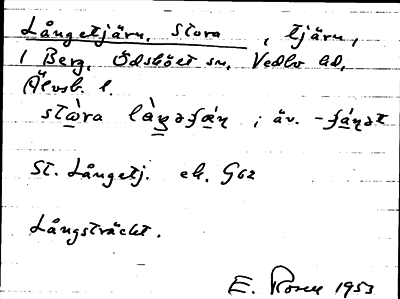 Långetjärn, Stora, tjärn,
1 Berg, Ödsköet sn, Vedbo hd,
Älvsb. l.
stωra làŋəʃæ̀ṇ ; äv. -ʃæ̀ṇət
St. Långetj. ek. G62
Långsträckt.
E. Rosell 1953